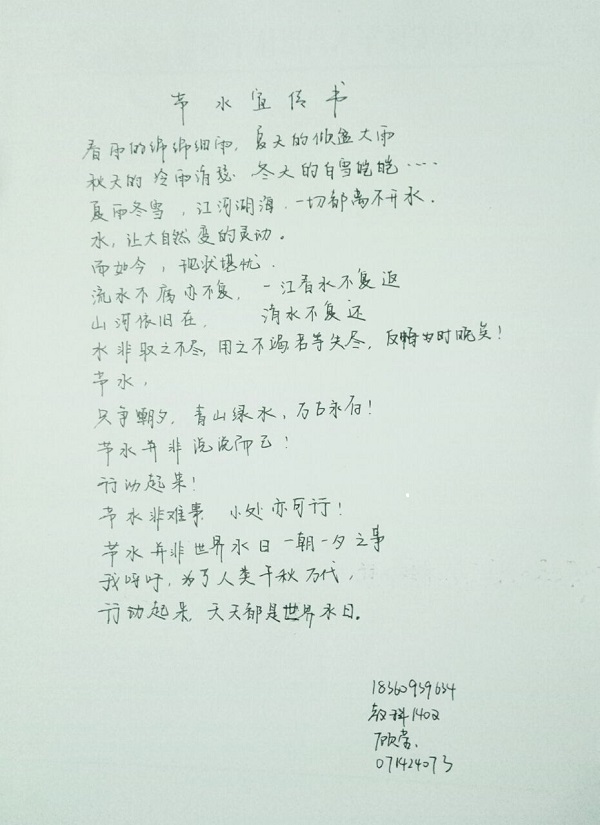 节水宣传书
春雨的绵绵细雨，夏天的倾盆大雨
秋天的冷雨消瑟 冬天的白雪皑皑……
夏雨冬雪，江河湖海，一切都离不开水．
水，让大自然变的灵动。
而如今，现状堪忧．
流水不腐亦不复，一江春水不复返
山河依旧在， 清水不复还
水非取之不尽，用之不竭，若等失尽，反悔为时晚矣！
节水，
只争朝夕，青山绿水，万古永存！
节水并非说说而已！
行动起来！
节水非难事 小处亦可行！
节水并非世界水日 一朝一夕之事
我呼吁，为了人类千秋万代，
行动起来，天天都是世界水日。
18360939634
教科1402
顾
071424073